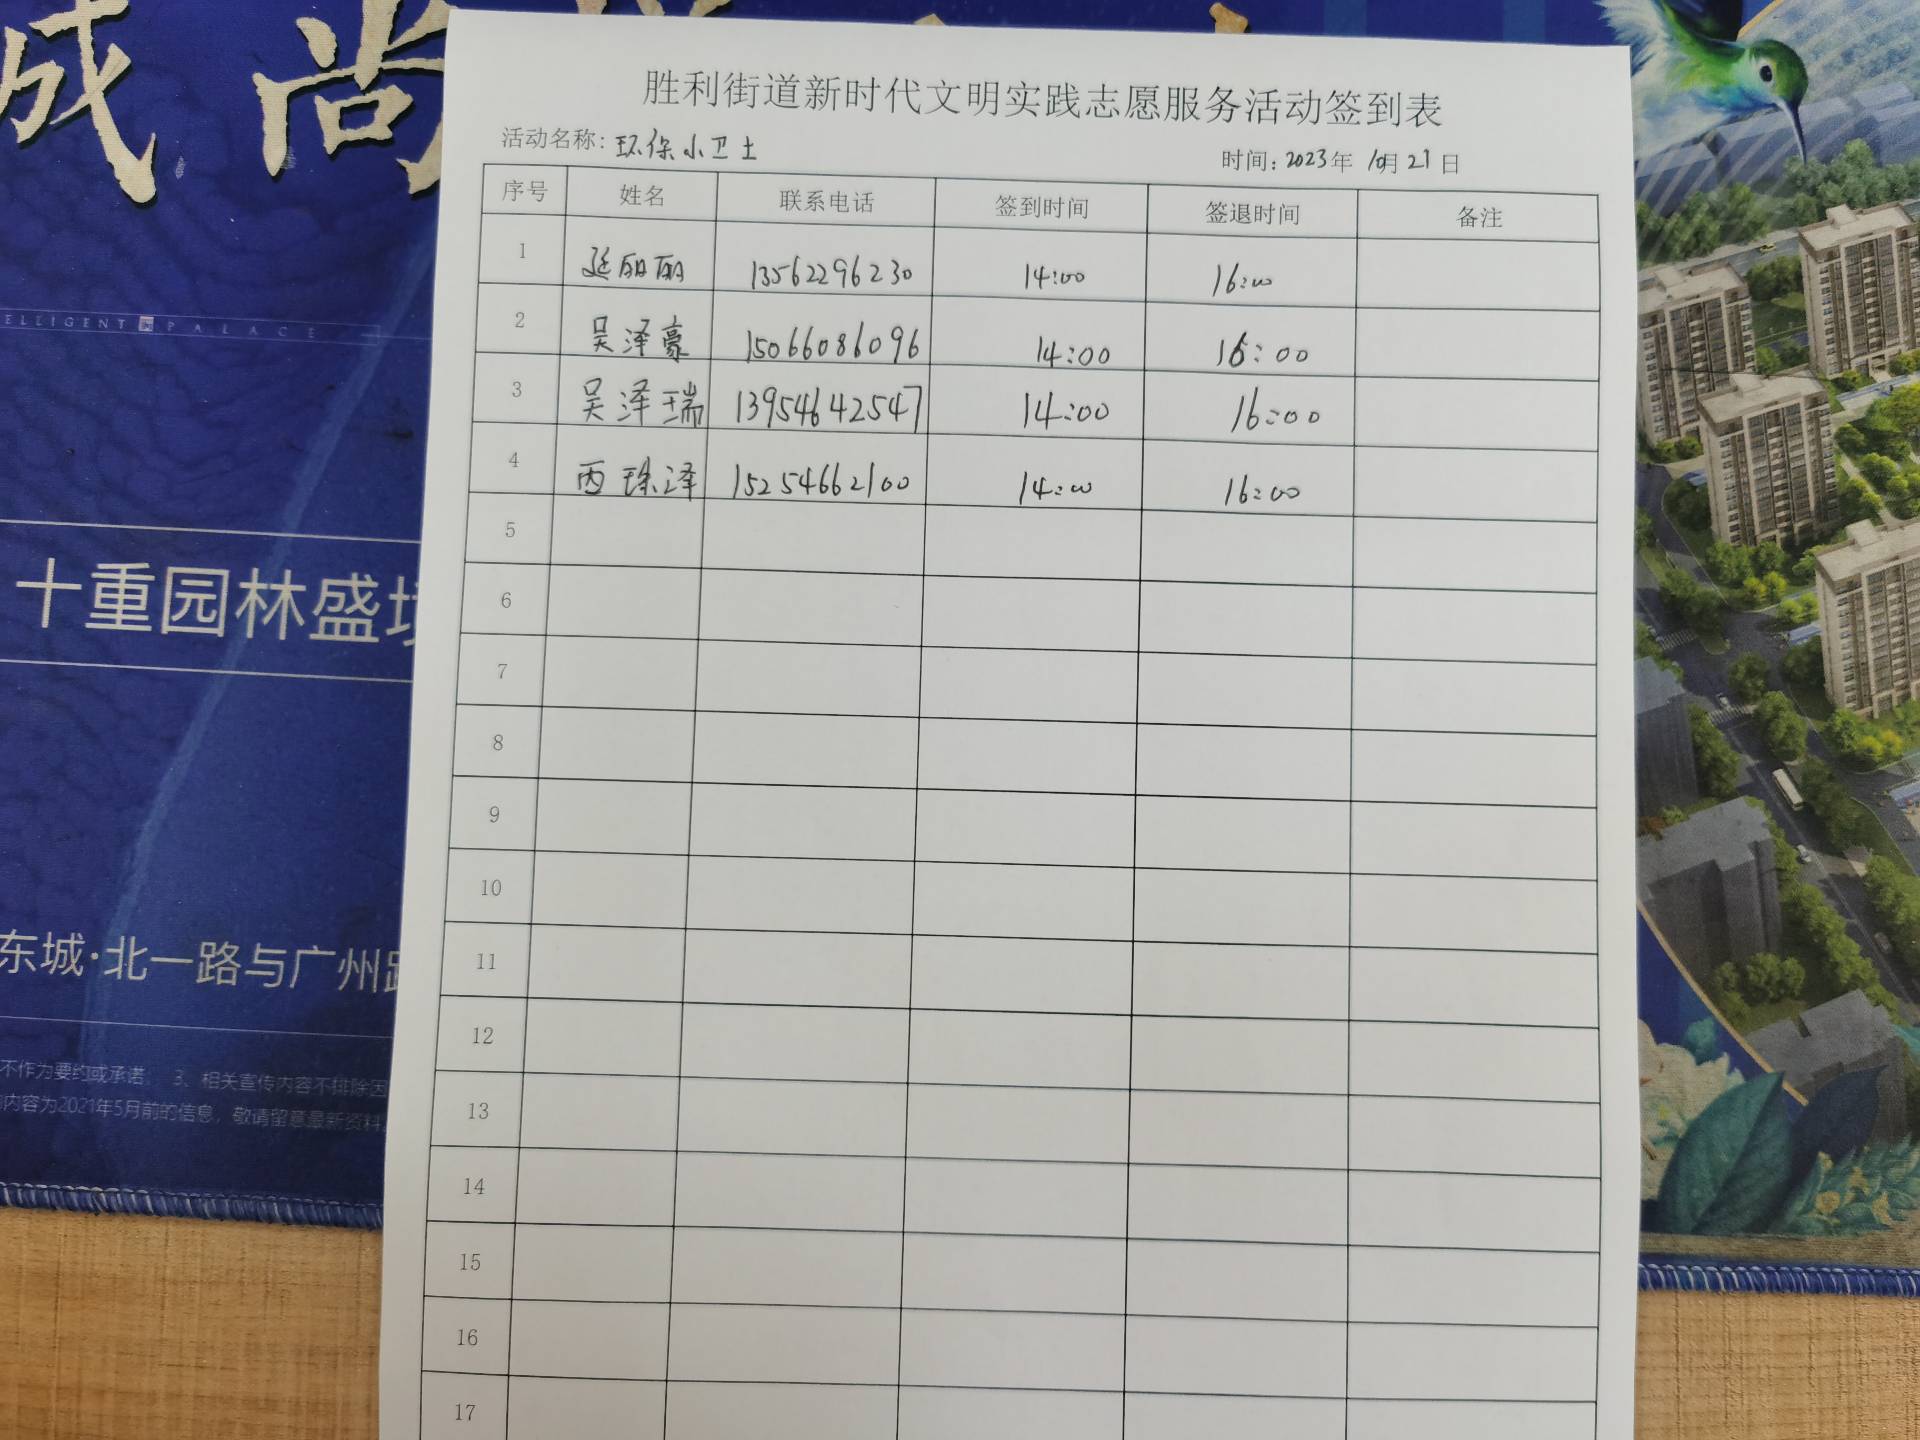 城 尚
ELLIGENT PALACE
十重园林盛境
东城·北一路与广州路
不作为要约或承诺; 3、相关宣传内容不排除因
内容为2021年5月前的信息，敬请留意最新资料。
胜利街道新时代文明实践志愿服务活动签到表
活动名称：环保小卫士 时间：2023年 10月 21日
序号 姓名 联系电话 签到时间 签退时间 备注
1 延丽丽 13562296230 14:00 16:00
2 吴泽豪 15066086096 14:00 16:00
3 吴泽瑞 13954642547 14:00 16:00
4 丙珠泽 15254662100 14:00 16:00
5
6
7
8
9
10
11
12
13
14
15
16
17